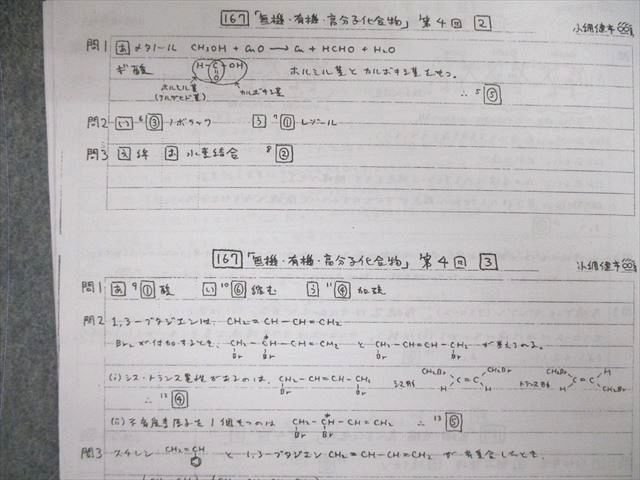 167 「無機・有機・高分子化合物」 第4回 2
問1 あ メタノール CH₃OH + CuO → Cu + HCHO + H₂O
ギ酸 H-C-OH ホルミル基とカルボキシ基をもつ。
O
ホルミル基 カルボキシ基
(アルデヒド基) ∴ 5 ⑤
問2 い 6 ③ ノボラック う 7 ① レゾール
問3 え 絹 お 水素結合 8 ②
167 「無機・有機・高分子化合物」 第4回 3
問1 あ 9 ① 酸 い 10 ⑥ 縮む う 11 ④ 加硫
問2 1,3-ブタジエンは, CH₂=CH-CH=CH₂
Br₂が付加すると, CH₂-C*H-CH=CH₂ と CH₂-CH=CH-CH₂ が考えられる。
Br Br Br Br
(i) シス-トランス異性があるのは, CH₂-CH=CH-CH₂ シス形 CH₂Br CH₂Br C=C H H トランス形 CH₂Br H C=C H CH₂Br
Br Br
∴ 12 ④
(ii) 不斉炭素原子を1個もつのは CH₂-C*H-CH=CH₂ ∴ 13 ⑤
Br Br
問3 スチレン CH₂=CH と 1,3-ブタジエン CH₂=CH-CH=CH₂ が共重合したとき,